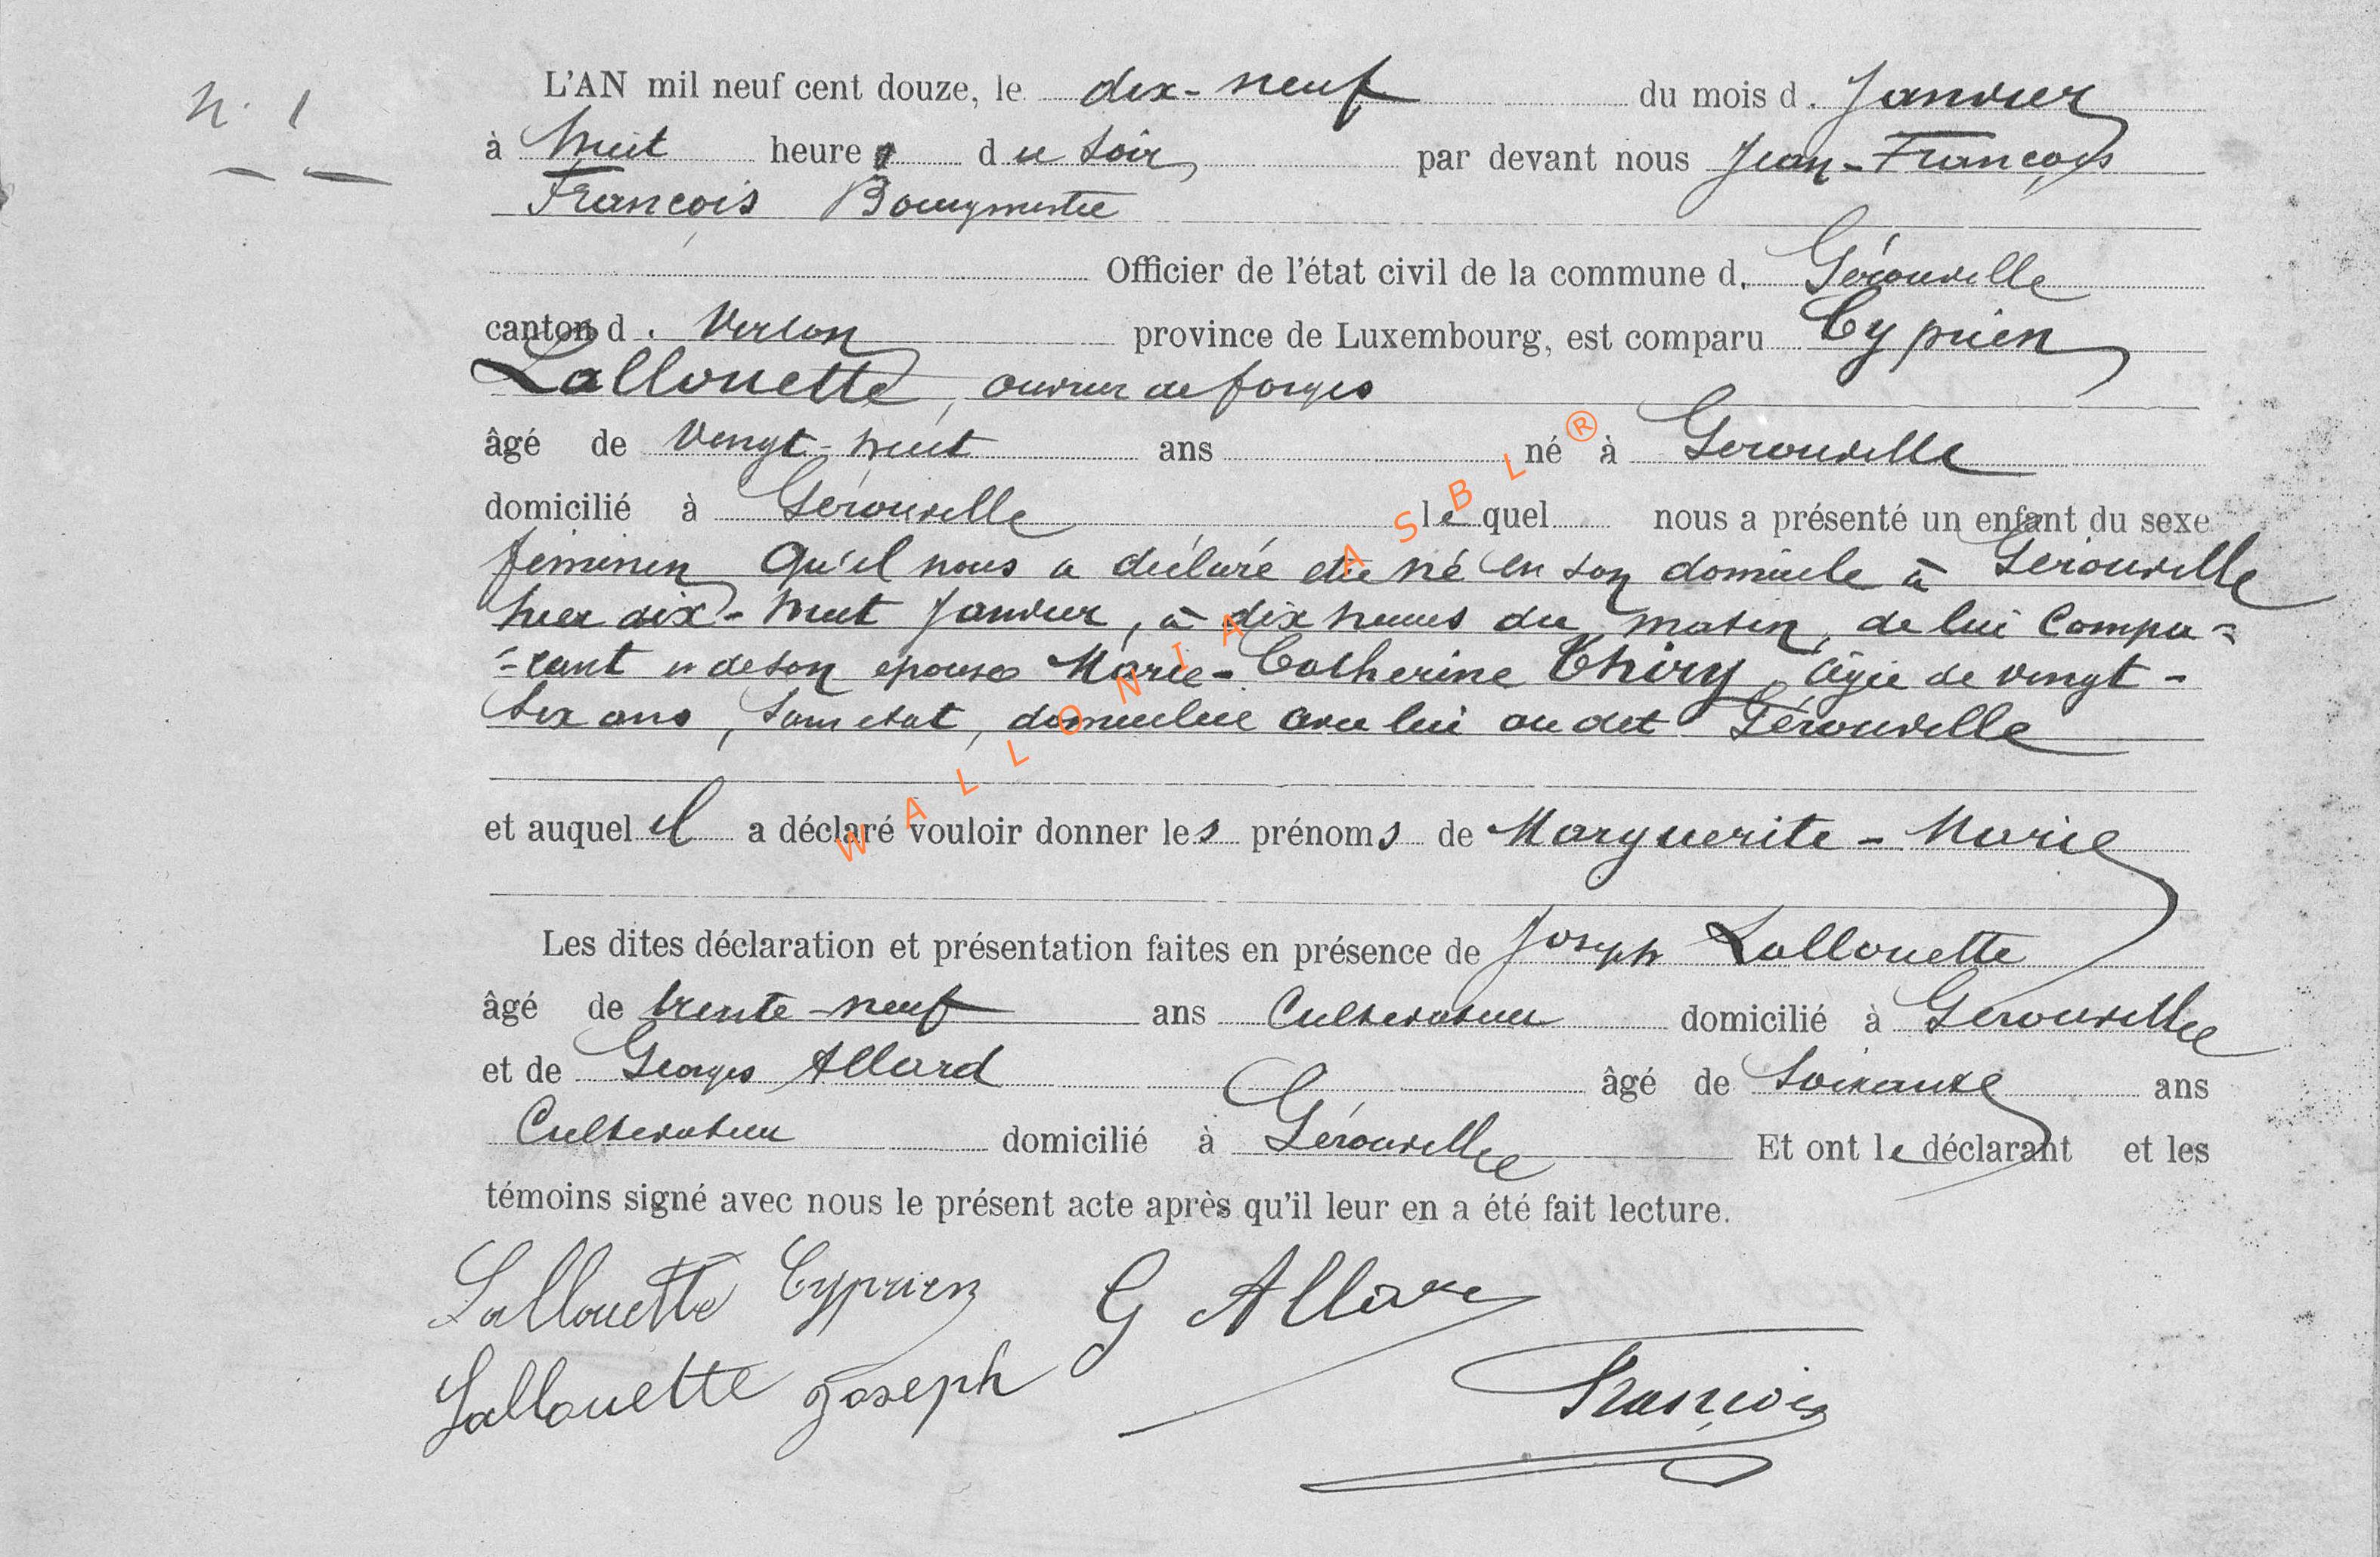 N. 1
L'AN mil neuf cent douze, le dix-neuf du mois d. Janvier
à huit heures du soir, par devant nous Jean-François
François Bourgmestre
Officier de l'état civil de la commune d. Gérouville
canton d. Virton province de Luxembourg, est comparu Cyprien
Lallouette, ouvrier de forges
âgé de vingt-huit ans né à Gerouville
domicilié à Gérouville lequel nous a présenté un enfant du sexe
féminin qu'il nous a déclaré être né en son domicile à Gerouville
hier dix-huit Janvier, à dix heures du matin, de lui compa=
=rant et de son épouse Marie-Catherine Thiry, âgée de vingt-
six ans, sans état, domiciliée avec lui au dit Gérouville
et auquel il a déclaré vouloir donner les prénoms de Marguerite-Marie
Les dites déclaration et présentation faites en présence de Joseph Lallouette
âgé de trente-neuf ans Cultivateur domicilié à Gerouville
et de Georges Allard âgé de soixante ans
Cultivateur domicilié à Gérouville Et ont le déclarant et les
témoins signé avec nous le présent acte après qu'il leur en a été fait lecture.
Lallouette Cyprien G Allard
Lallouette Joseph François
WALLONIA ASBL ®